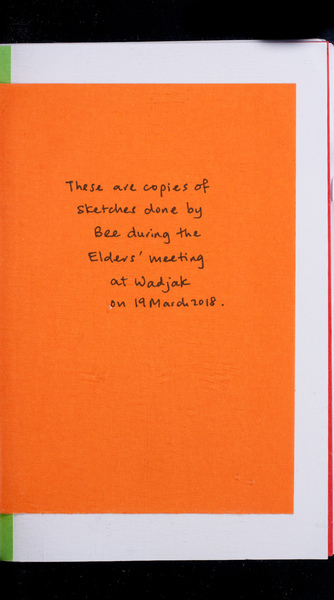 These are copies of
sketches done by
Bee during the
Elders' meeting
at Wadjak
on 19 March 2018.